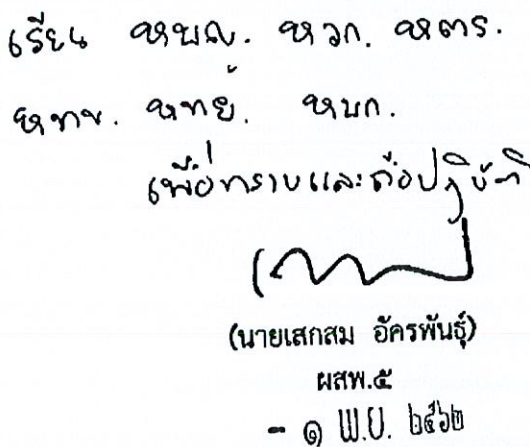 เรียน หบญ. หวก. หตร.
หทข. หทย์. หบก.
เพื่อทราบและถือปฏิบัติ
(นายเสกสม อัครพันธุ์)
ผสพ.๕
- ๑ พ.ย. ๒๕๖๒